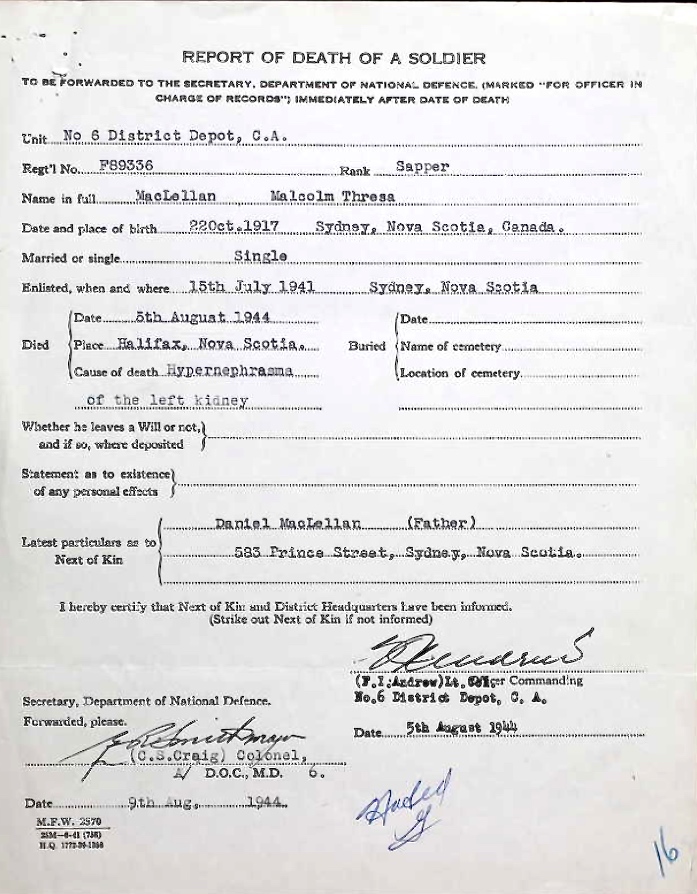 REPORT OF DEATH OF A SOLDIER
TO BE FORWARDED TO THE SECRETARY, DEPARTMENT OF NATIONAL DEFENCE, (MARKED "FOR OFFICER IN
CHARGE OF RECORDS") IMMEDIATELY AFTER DATE OF DEATH
Unit No 6 District Depot, C.A.
Regt'l No. F89336 Rank Sapper
Name in full MacLellan Malcolm Thresa
Date and place of birth 22Oct.1917 Sydney, Nova Scotia, Canada.
Married or single Single
Enlisted, when and where 15th July 1941 Sydney, Nova Scotia
Died Date 5th August 1944 Buried Date
Place Halifax, Nova Scotia. Name of cemetery
Cause of death Hypernephrasma Location of cemetery
of the left kidney
Whether he leaves a Will or not,
and if so, where deposited
Statement as to existence
of any personal effects
Latest particulars as to Next of Kin
Daniel MacLellan (Father)
583 Prince Street, Sydney, Nova Scotia.
I hereby certify that Next of Kin and District Headquarters have been informed.
(Strike out Next of Kin if not informed)
(F.I.Andrew) Lt. Officer Commanding
No.6 District Depot, C. A.
Date 5th August 1944
Secretary, Department of National Defence.
Forwarded, please.
(C.S.Craig) Colonel,
A/ D.O.C., M.D. 6.
Date 9th Aug, 1944.
M.F.W. 2570
25M—6-41 (738)
H.Q. 1772-39-1358
16